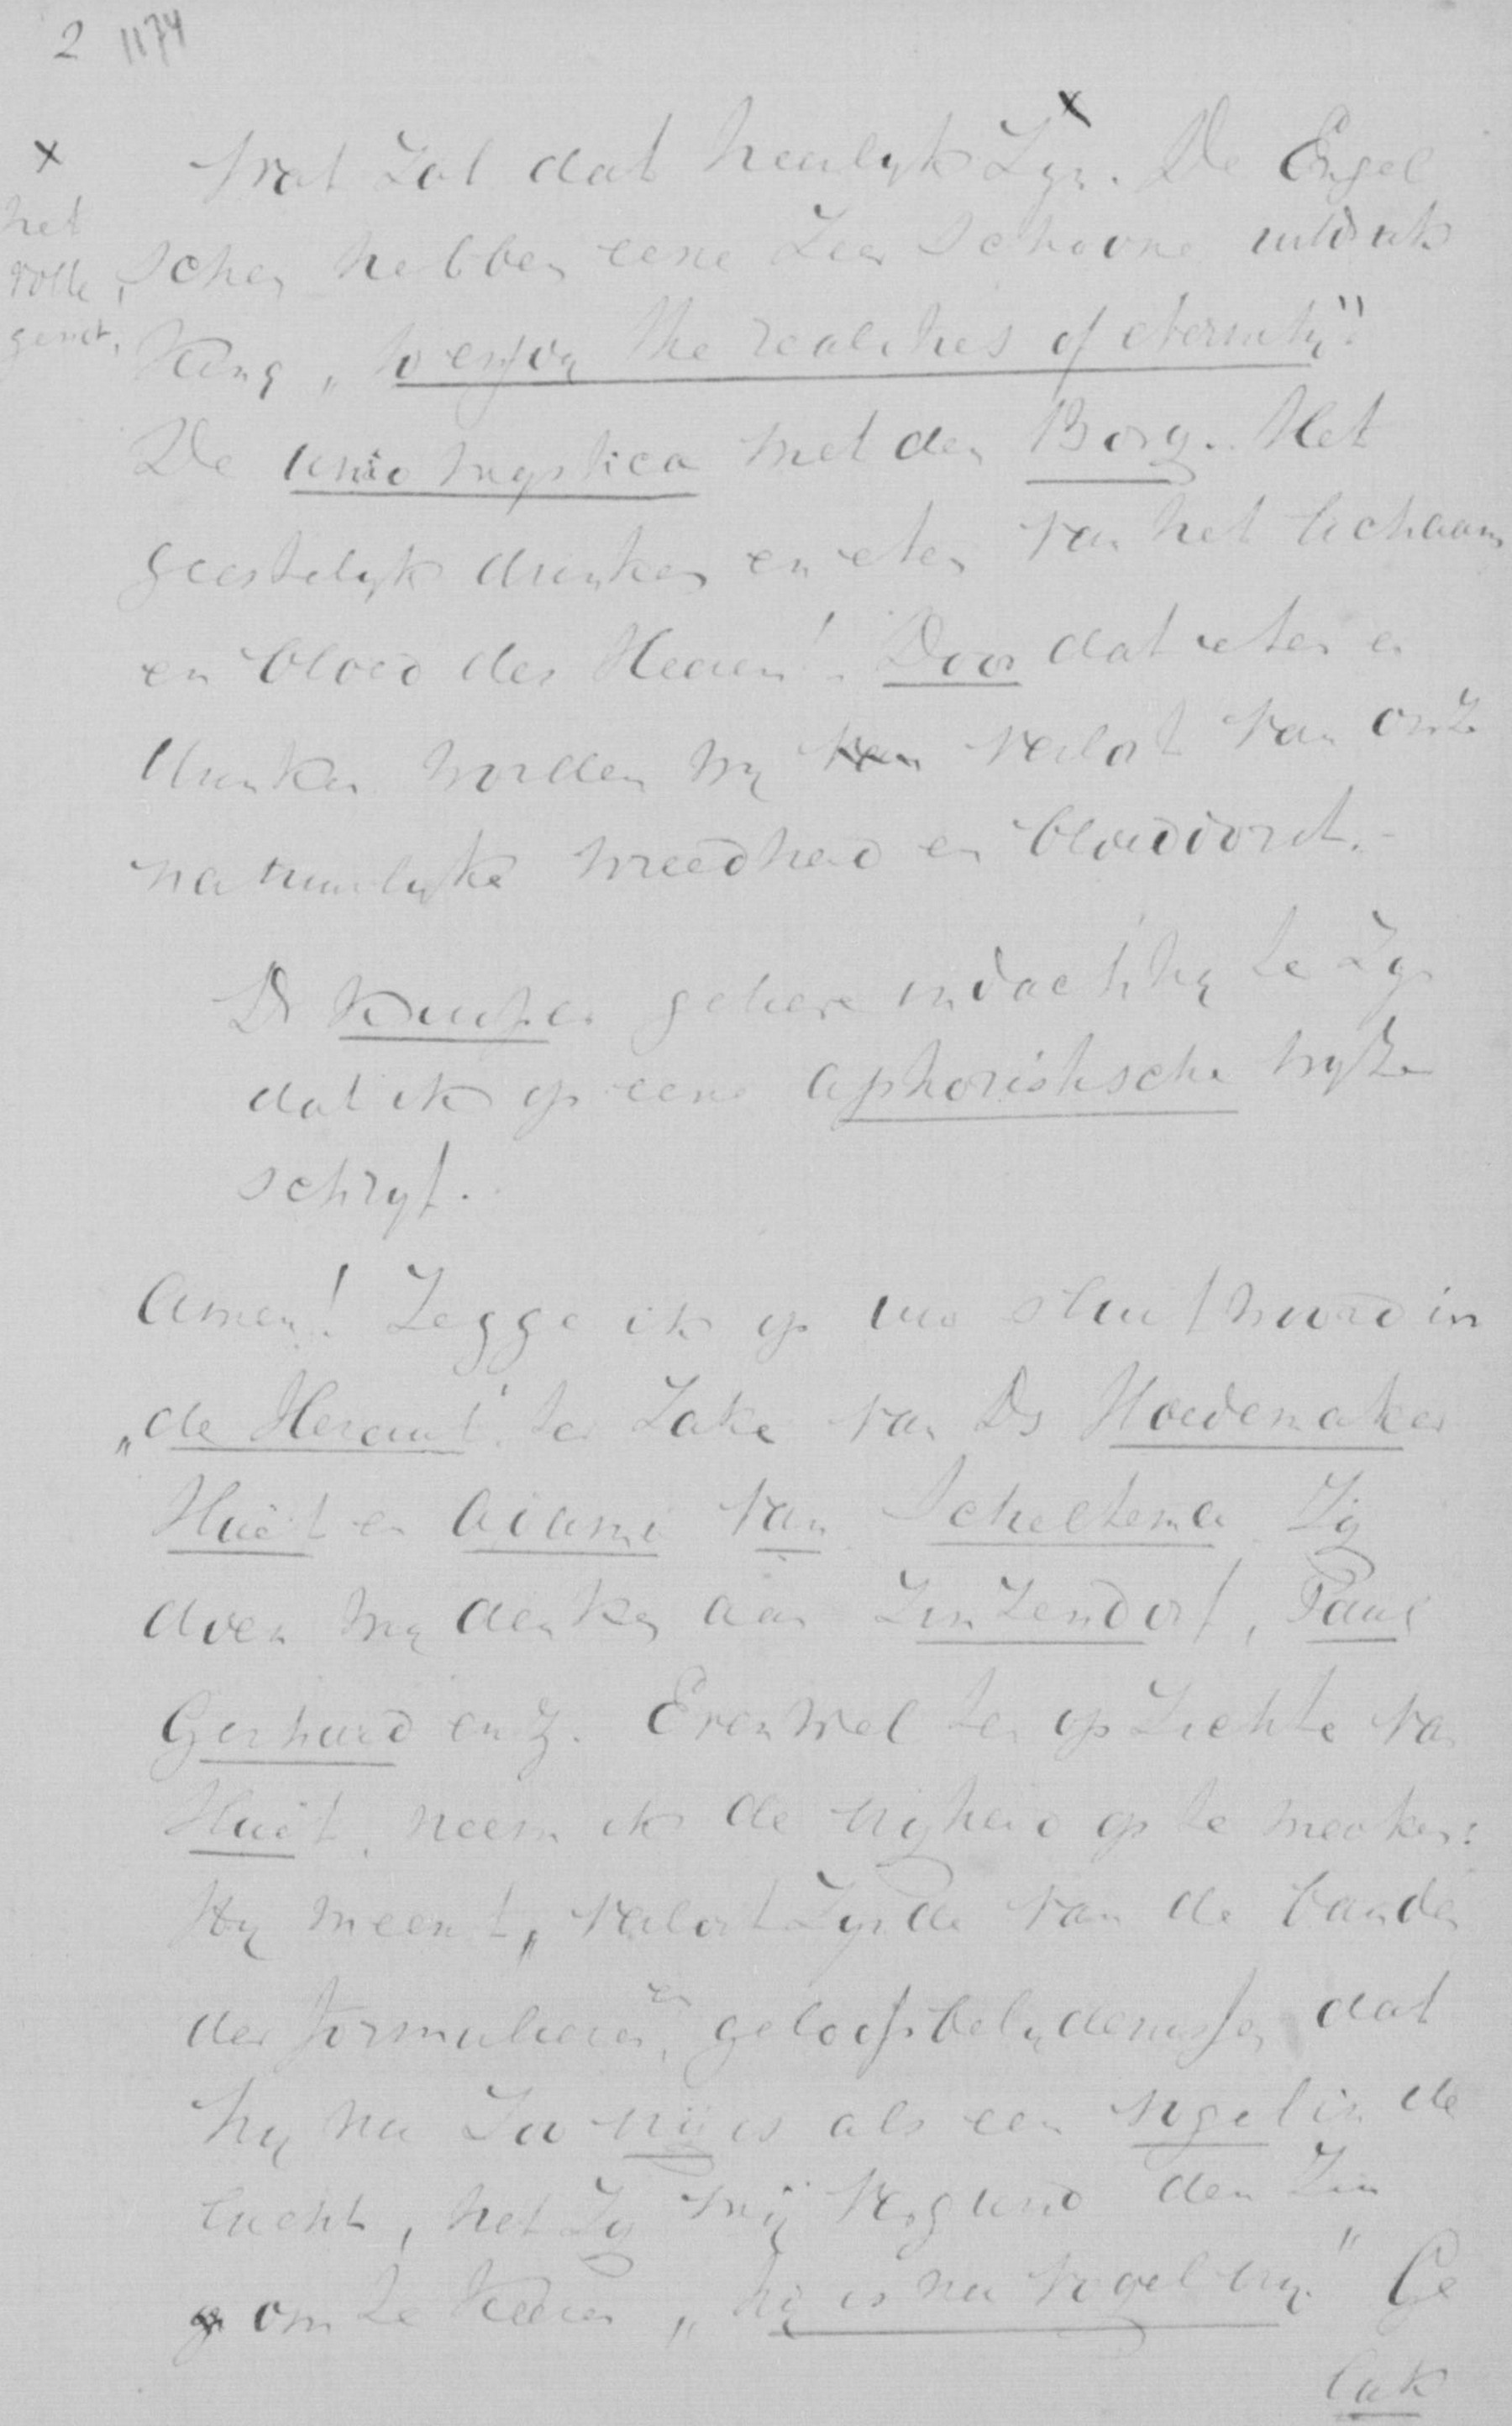 2 1174
x
x
het
volle
genot,
Wat zal dat heerlyk zyn. De Engel
schen hebben eene zeer schoone uitdruk
king „to enjoy the realities of eternity".
De unio mystica met den Borg. Het
geestelyk drinken en eten van het lichaam
en bloed des Heeren! Door dat eten en
drinken worden wy van verlost van onze
natuurlyke wreedheid en bloeddorst.-
Dr Kuyper gelieve indachtig te zyn
dat ik op eene aphoristische wyze
schryf.
Amen! Zegge ik op uw sluitwoord in
„de Heraut" ter zake van Ds Hoedemaker
Huët en Adama van Scheltema Zij
doen my denken aan Zinzendorf, Paul
Gerhard enz. Evenwel ten opzichte van
Huët, neem ik de vrijheid op te merken:
Hy meent, „verlost zynde van de banden
der formulieren en geloofsbelydenissen dat
hy nu zoo vrij is als een vogel in de
lucht, het zy mij vergund den zin
om te keeren „hij is nu vogelvry." Ge
luk